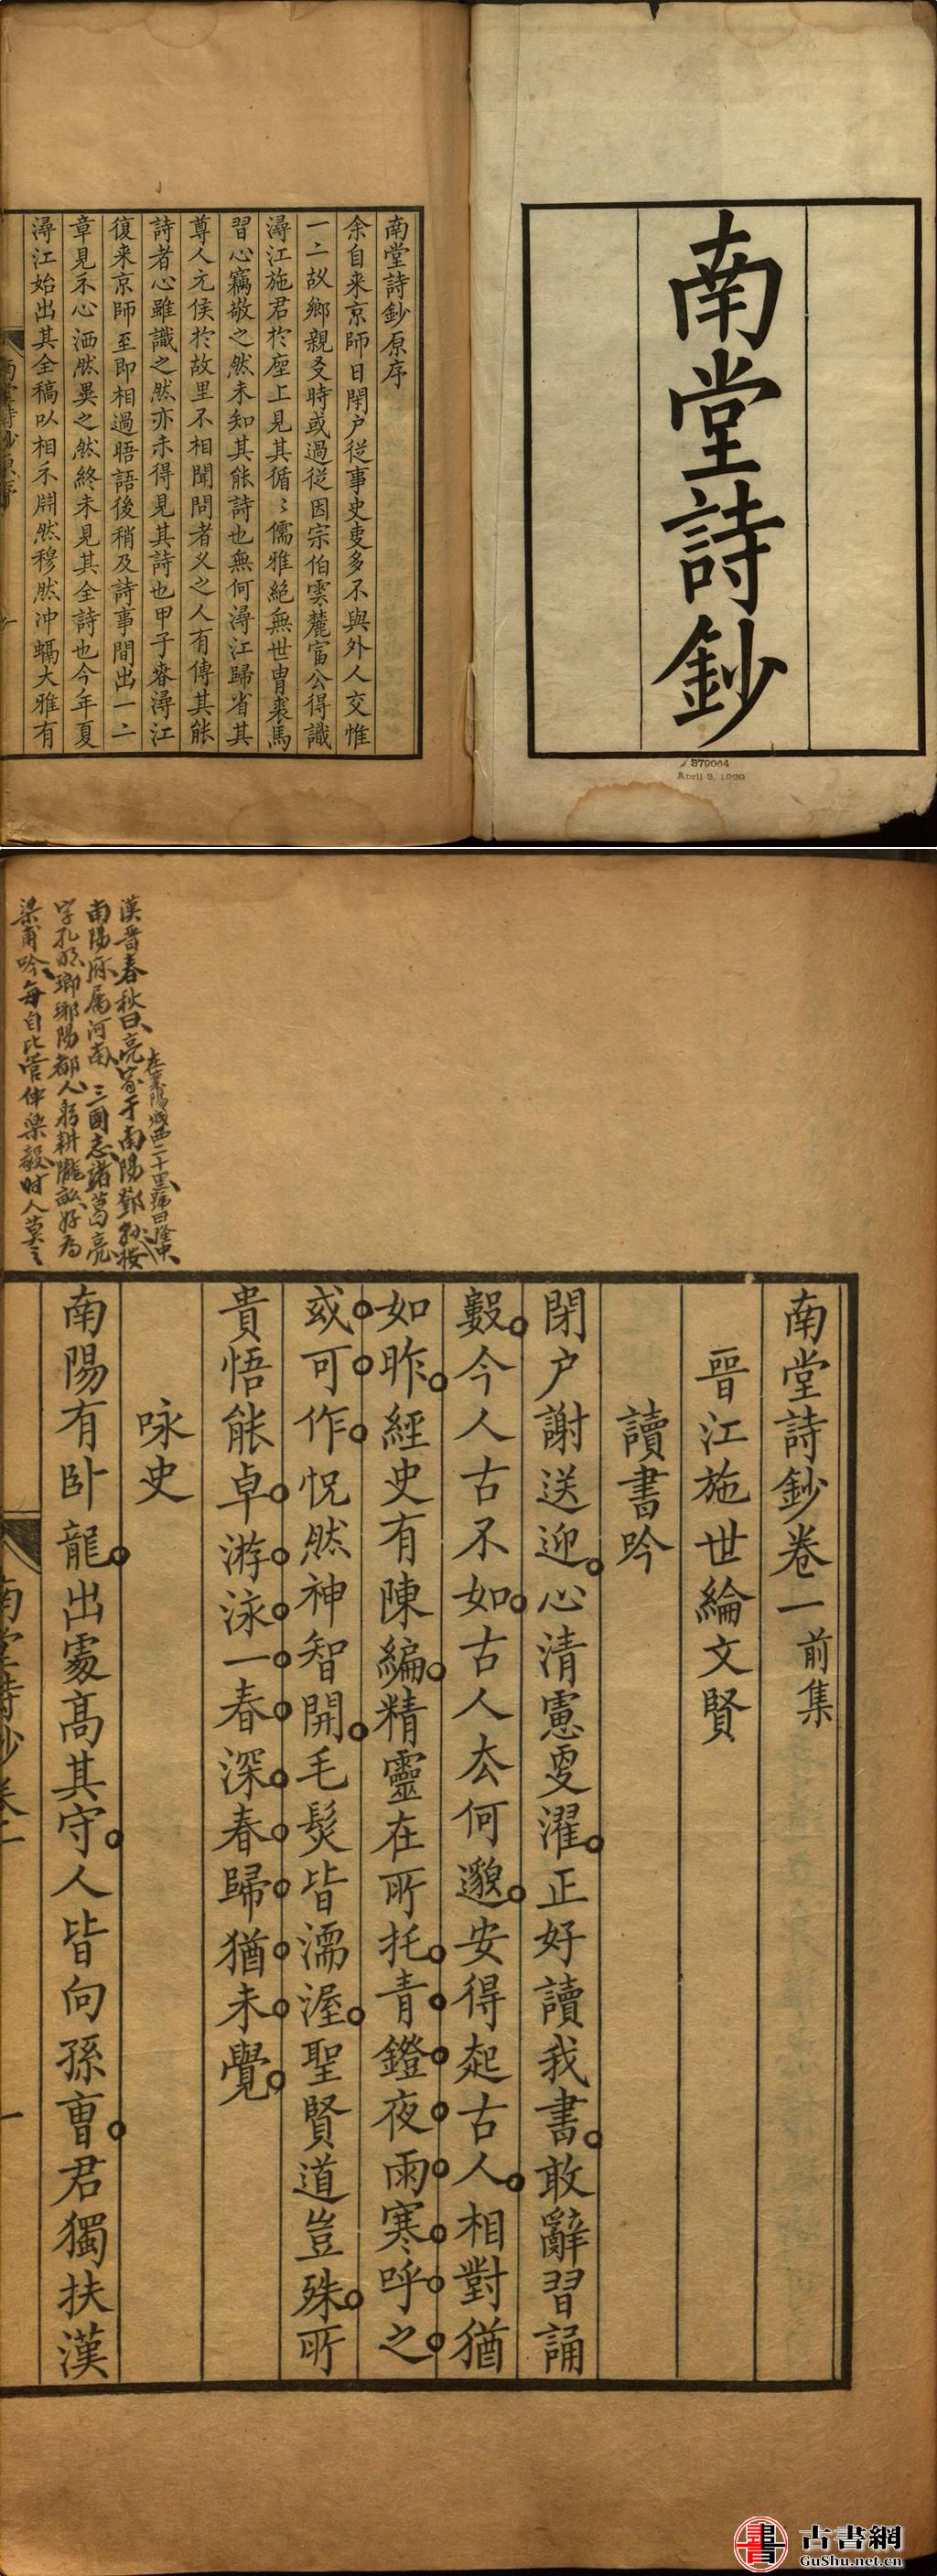 南堂詩鈔
379064
April 3, 1900
南堂詩鈔原序
余自来京師日閉户從事史叓多不與外人交惟
一二故鄉親叐時或過從因宗伯雲麓富公得識
潯江施君於座上見其循〻儒雅絕無世胄裘馬
習心竊敬之然未知其能詩也無何潯江歸省其
尊人元侯於故里不相聞問者乆之人有傳其能
詩者心雖識之然亦未得見其詩也甲子春潯江
復来京師至即相過晤語後稍及詩事間出一二
章見示心洒然異之然終未見其全詩也今年夏
潯江始出其全稿以相示闢然穆然冲瀜大雅有
南堂詩鈔原序
一
南堂詩鈔卷一前集
晉江施世綸文賢
讀書吟
閉户謝送迎心清慮叓濯正好讀我書敢辭習誦
數今人古不如古人厺何邈安得起古人相對猶
如昨經史有陳編精靈在所托青鐙夜雨寒呼之
或可作怳然神智開毛髮皆濡渥聖賢道豈殊所
貴悟能卓游泳一春深春歸猶未覺
咏史
南陽有卧龍出處高其守人皆向孫曹君獨扶漢
南堂詩鈔卷一
一
在襄陽城西二十里號曰隆中
漢晉春秋曰亮家于南陽鄧縣
南陽府屬河南三國志諸葛亮
字孔明瑯琊陽都人躬耕隴畝好為
梁甫吟每自比管仲樂毅时人莫之
古書網
GuShu.net.cn